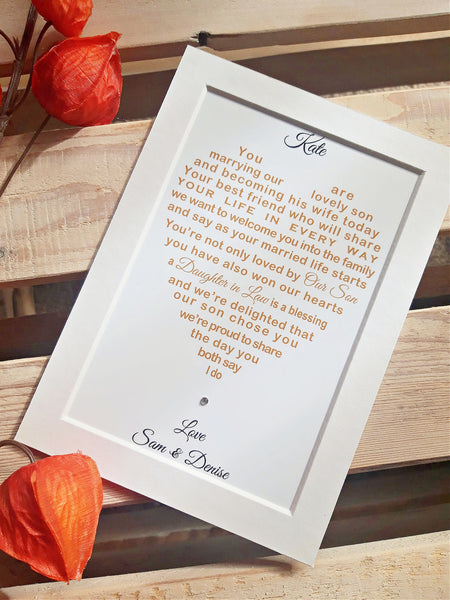 Kate
You are
marrying our lovely son
and becoming his wife today
Your best friend who will share
YOUR LIFE IN EVERY WAY
we want to welcome you into the family
and say as your married life starts
You're not only loved by Our Son
you have also won our hearts
a Daughter in Law is a blessing
and we're delighted that
our son chose you
we're proud to share
the day you
both say
I do
Love
Sam & Denise